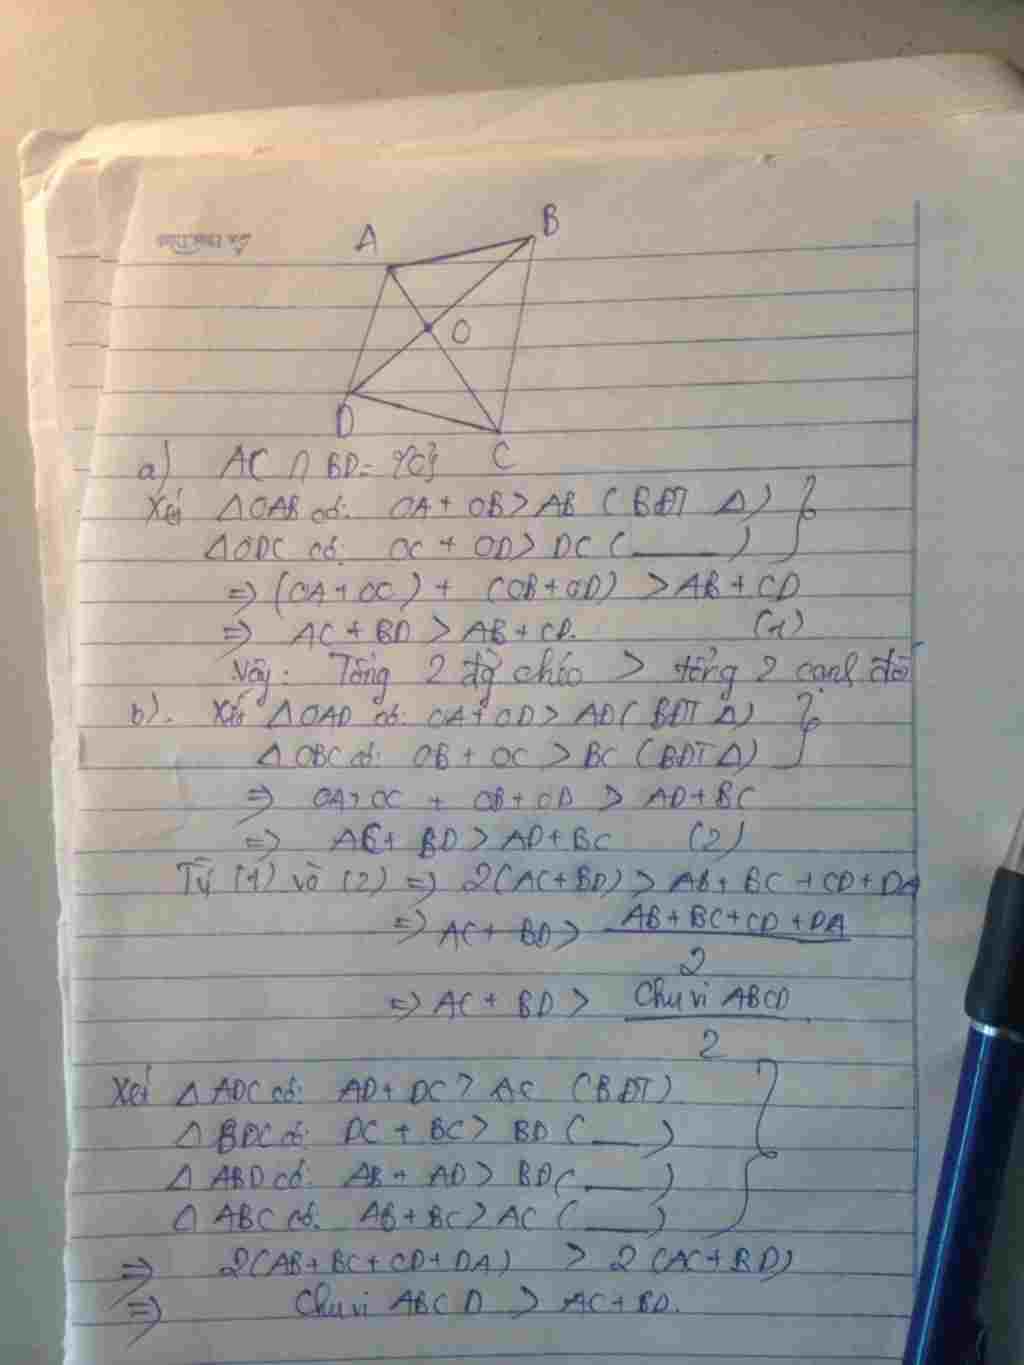 A
B
O
D
C
a) AC ∩ BD = {O}
Xét ΔOAB có: OA + OB > AB (BĐT Δ)
ΔODC có: OC + OD > DC (___)
=> (OA + OC) + (OB + OD) > AB + CD
=> AC + BD > AB + CD. (1)
Vậy: Tổng 2 đg chéo > tổng 2 cạnh đối
b). Xét ΔOAD có: OA + OD > AD (BĐT Δ)
ΔOBC có: OB + OC > BC (BĐT Δ)
=> OA + OC + OB + OD > AD + BC
=> AC + BD > AD + BC (2)
Từ (1) và (2) => 2(AC + BD) > AB + BC + CD + DA
=> AC + BD > AB + BC + CD + DA
2
=> AC + BD > Chu vi ABCD
2
Xét Δ ADC có: AD + DC > AC (BĐT)
Δ BDC có: DC + BC > BD (___)
Δ ABD có: AB + AD > BD (___)
Δ ABC có: AB + BC > AC (___)
=> 2(AB + BC + CD + DA) > 2 (AC + BD)
=> Chu vi ABCD > AC + BD.